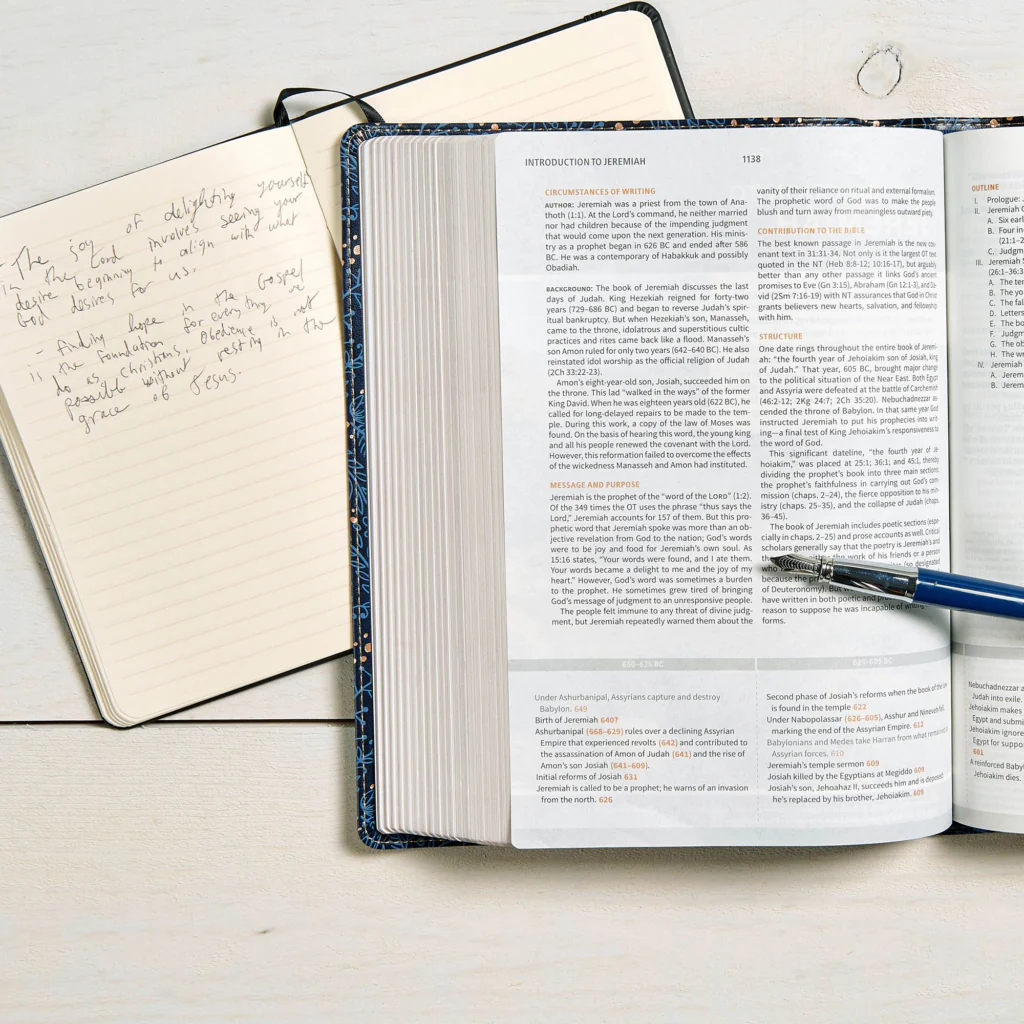 - The joy of delighting yourself
in the Lord involves seeing your
desire beginning to align with what
God desires for us.
- Finding hope in the Gospel
is the foundation for everything we
do as Christians. Obedience is not
possible without resting in the
grace of Jesus.
INTRODUCTION TO JEREMIAH 1138
CIRCUMSTANCES OF WRITING
AUTHOR: Jeremiah was a priest from the town of Ana-
thoth (1:1). At the Lord's command, he neither married
nor had children because of the impending judgment
that would come upon the next generation. His minis-
try as a prophet began in 626 BC and ended after 586
BC. He was a contemporary of Habakkuk and possibly
Obadiah.
BACKGROUND: The book of Jeremiah discusses the last
days of Judah. King Hezekiah reigned for forty-two
years (729–686 BC) and began to reverse Judah's spir-
itual bankruptcy. But when Hezekiah's son, Manasseh,
came to the throne, idolatrous and superstitious cultic
practices and rites came back like a flood. Manasseh's
son Amon ruled for only two years (642–640 BC). He also
reinstated idol worship as the official religion of Judah
(2Ch 33:22-23).
Amon's eight-year-old son, Josiah, succeeded him on
the throne. This lad "walked in the ways" of the former
King David. When he was eighteen years old (622 BC), he
called for long-delayed repairs to be made to the tem-
ple. During this work, a copy of the law of Moses was
found. On the basis of hearing this word, the young king
and all his people renewed the covenant with the Lord.
However, this reformation failed to overcome the effects
of the wickedness Manasseh and Amon had instituted.
MESSAGE AND PURPOSE
Jeremiah is the prophet of the "word of the LORD" (1:2).
Of the 349 times the OT uses the phrase "thus says the
Lord," Jeremiah accounts for 157 of them. But this pro-
phetic word that Jeremiah spoke was more than an ob-
jective revelation from God to the nation; God's words
were to be joy and food for Jeremiah's own soul. As
15:16 states, "Your words were found, and I ate them.
Your words became a delight to me and the joy of my
heart." However, God's word was sometimes a burden
to the prophet. He sometimes grew tired of bringing
God's message of judgment to an unresponsive people.
The people felt immune to any threat of divine judg-
ment, but Jeremiah repeatedly warned them about the
vanity of their reliance on ritual and external formalism.
The prophetic word of God was to make the people
blush and turn away from meaningless outward piety.
CONTRIBUTION TO THE BIBLE
The best known passage in Jeremiah is the new cov-
enant text in 31:31-34. Not only is it the largest OT text
quoted in the NT (Heb 8:8-12; 10:16-17), but arguably
better than any other passage it links God's ancient
promises to Eve (Gn 3:15), Abraham (Gn 12:1-3), and Da-
vid (2Sm 7:16-19) with NT assurances that God in Christ
grants believers new hearts, salvation, and fellowship
with him.
STRUCTURE
One date rings throughout the entire book of Jerem-
iah: "the fourth year of Jehoiakim son of Josiah, king
of Judah." That year, 605 BC, brought major changes
to the political situation of the Near East. Both Egypt
and Assyria were defeated at the battle of Carchemish
(46:2-12; 2Kg 24:7; 2Ch 35:20). Nebuchadnezzar as-
cended the throne of Babylon. In that same year God
instructed Jeremiah to put his prophecies into writ-
ing—a final test of King Jehoiakim's responsiveness to
the word of God.
This significant dateline, "the fourth year of Je-
hoiakim," was placed at 25:1; 36:1; and 45:1, thereby
dividing the prophet's book into three main sections:
the prophet's faithfulness in carrying out God's com-
mission (chaps. 2–24), the fierce opposition to his min-
istry (chaps. 25–35), and the collapse of Judah (chaps.
36–45).
The book of Jeremiah includes poetic sections (espe-
cially in chaps. 2–25) and prose accounts as well. Critical
scholars generally say that the poetry is Jeremiah's and
the work of his friends or a person
who (so designated
because the
of Deuteronomy). But
have written in both poetic and
reason to suppose he was incapable of
forms.
650–625 BC
Under Ashurbanipal, Assyrians capture and destroy
Babylon. 649
Birth of Jeremiah 640?
Ashurbanipal (668–629) rules over a declining Assyrian
Empire that experienced revolts (642) and contributed to
the assassination of Amon of Judah (641) and the rise of
Amon's son Josiah (641–609).
Initial reforms of Josiah 631
Jeremiah is called to be a prophet; he warns of an invasion
from the north. 626
625–605 BC
Second phase of Josiah's reforms when the book of the law
is found in the temple 622
Under Nabopolassar (626–605), Asshur and Nineveh fall,
marking the end of the Assyrian Empire. 612
Babylonians and Medes take Harran from what remained of
Assyrian forces. 610
Jeremiah's temple sermon 609
Josiah killed by the Egyptians at Megiddo 609
Josiah's son, Jehoahaz II, succeeds him and is deposed;
he's replaced by his brother, Jehoiakim. 609
OUTLINE
I. Prologue:
II. Jeremiah
A. Six earl
B. Four in
(21:1–2
C. Judgm
III. Jeremiah
(26:1–36:3
A. The te
B. The yo
C. The fal
D. Letters
E. The bo
F. Judgm
G. The ob
H. The w
IV. Jeremiah
A. Jerem
B. Jerem
Nebuchadnezzar a
Judah into exile.
Jehoiakim makes
Egypt and submi
Jehoiakim ignore
Egypt for suppo
601
A reinforced Baby
Jehoiakim dies.